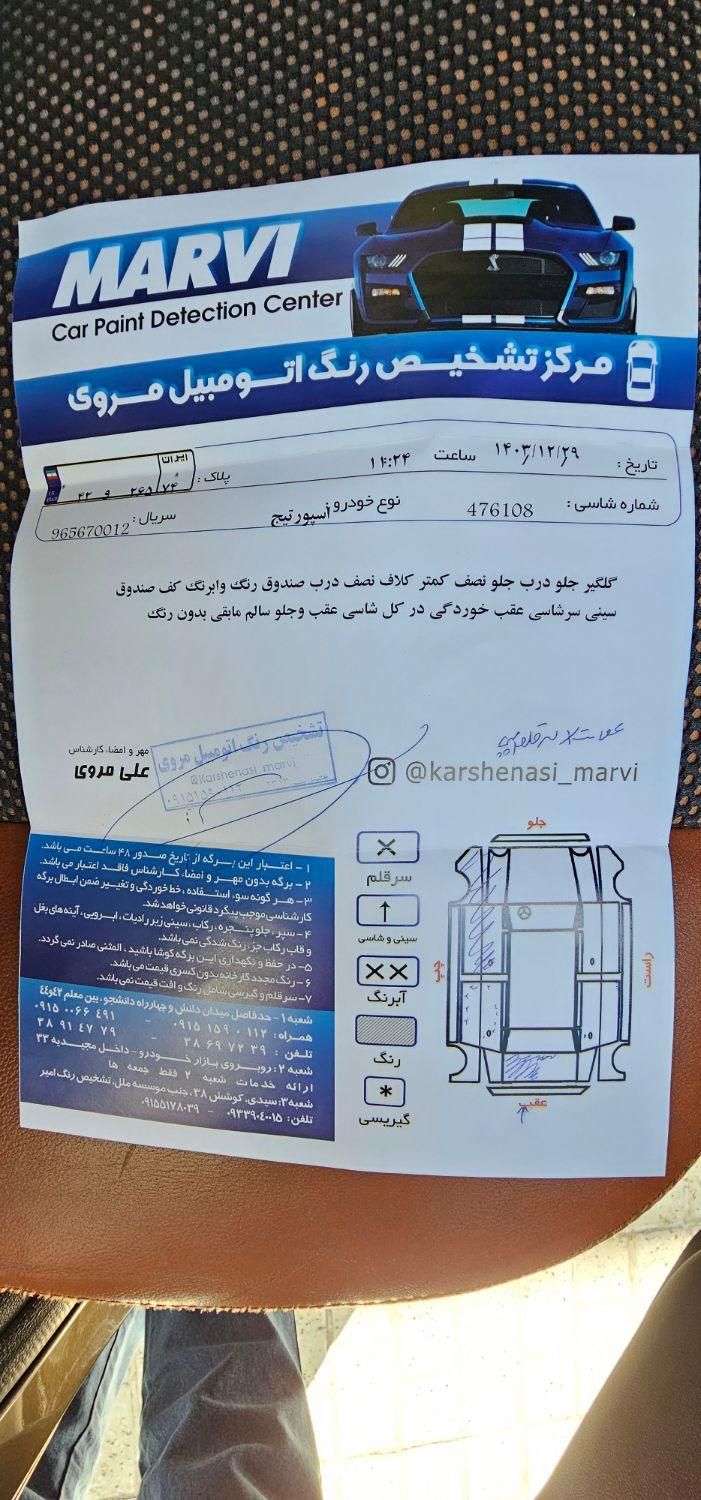 MARVI
Car Paint Detection Center
مرکز تشخیص رنگ اتومبیل مروی
تاریخ : ۱۴۰۳/۱۲/۲۹ ساعت ۱۴:۲۴ پلاک : ایران ۷۴ ۲۶۵ ۹ ۴۲
شماره شاسی : 476108 نوع خودرو اسپورتیج سریال : 965670012
گلگیر جلو درب جلو نصف کمتر کلاف نصف درب صندوق رنگ وابرنگ کف صندوق
سینی سرشاسی عقب خوردگی در کل شاسی عقب وجلو سالم مابقی بدون رنگ
مهر و امضاء کارشناس
علی مروی
تشخیص رنگ اتومبیل مروی
@Karshenasi_marvi
@karshenasi_marvi
۱ - اعتبار این برگه از تاریخ صدور ۴۸ ساعت می باشد.
۲ - برگه بدون مهر و امضاء کارشناس فاقد اعتبار می باشد.
۳ - هر گونه سوء استفاده ، خط خوردگی و تغییر ضمن ابطال برگه
کارشناسی موجب پیگرد قانونی خواهد شد.
۴ - سپر، جلو پنجره، رکاب، سینی زیر رادیات، ابرویی، آینه های بغل
و قاب رکاب جزء رنگ شدگی نمی باشد.
۵- در حفظ و نگهداری این برگه کوشا باشید ، المثنی صادر نمی گردد.
۶ - رنگ مجدد کارخانه بدون کسری قیمت می باشد.
۷- سر قلم و گیریسی شامل رنگ و افت قیمت نمی باشد.
شعبه ۱- حدفاصل میدان دانش و چهارراه دانشجو، بین معلم ۴۲و۴۴
همراه : ۱۱۲ ۱۵۹ ۰۹۱۵ - ۴۹۱ ۰۰۶۶ ۰۹۱۵
تلفن : ۳۹ ۷۲ ۶۹ ۳۸ - ۷۹ ۴۷ ۹۱ ۳۸
شعبه ۲: روبروی بازار خودرو - داخل مجیدیه ۳۳
ارائه خدمات شعبه ۲ فقط جمعه ها
شعبه۳: سیدی، کوشش ۳۸، جنب موسسه ملل، تشخیص رنگ امیر
تلفن: ۰۹۳۳۹۰۴۰۰۱۵ - ۰۹۱۵۵۱۷۸۰۳۹
سر قلم
سینی و شاسی
آبرنگ
رنگ
گیریسی
جلو
چپ
راست
عقب